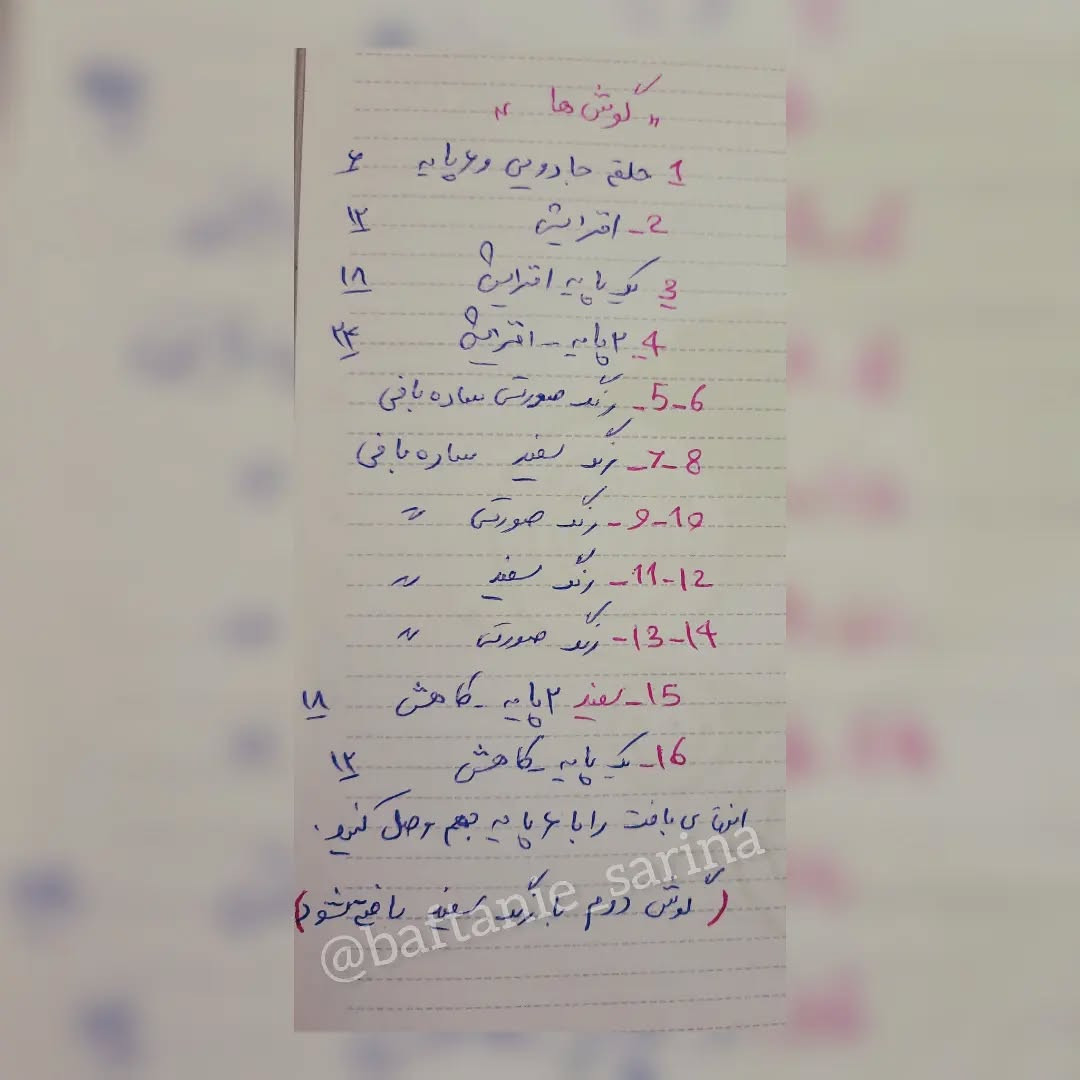 "گوش ها"
1 حلقه جادویی و ۶ پایه ۶
2- افزایش ۱۲
3 یک پایه افزایش ۱۸
4- ۲ پایه - افزایش ۲۴
5-6- رنگ صورتی ساده بافی
7-8- رنگ سفید ساده بافی
9-10- رنگ صورتی "
11-12- رنگ سفید "
13-14- رنگ صورتی "
15- سفید ۲ پایه - کاهش ۱۸
16- یک پایه - کاهش ۱۲
انتهای بافت را با ۶ پایه بهم وصل کنید.
(گوش دوم با رنگ سفید بافته شود)
@baftanie_sarina